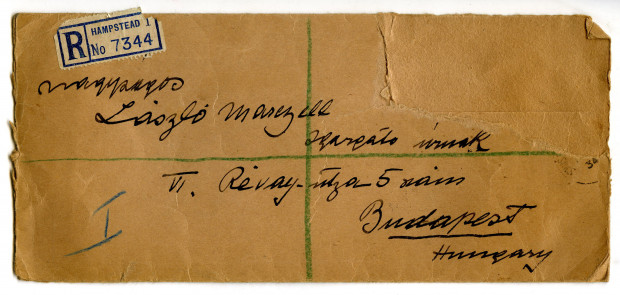 HAMPSTEAD 1
R No 7344
László Marczell
Igazgató úrnak
VI. Révay-utza 5 szám
Budapest
Hungary
I